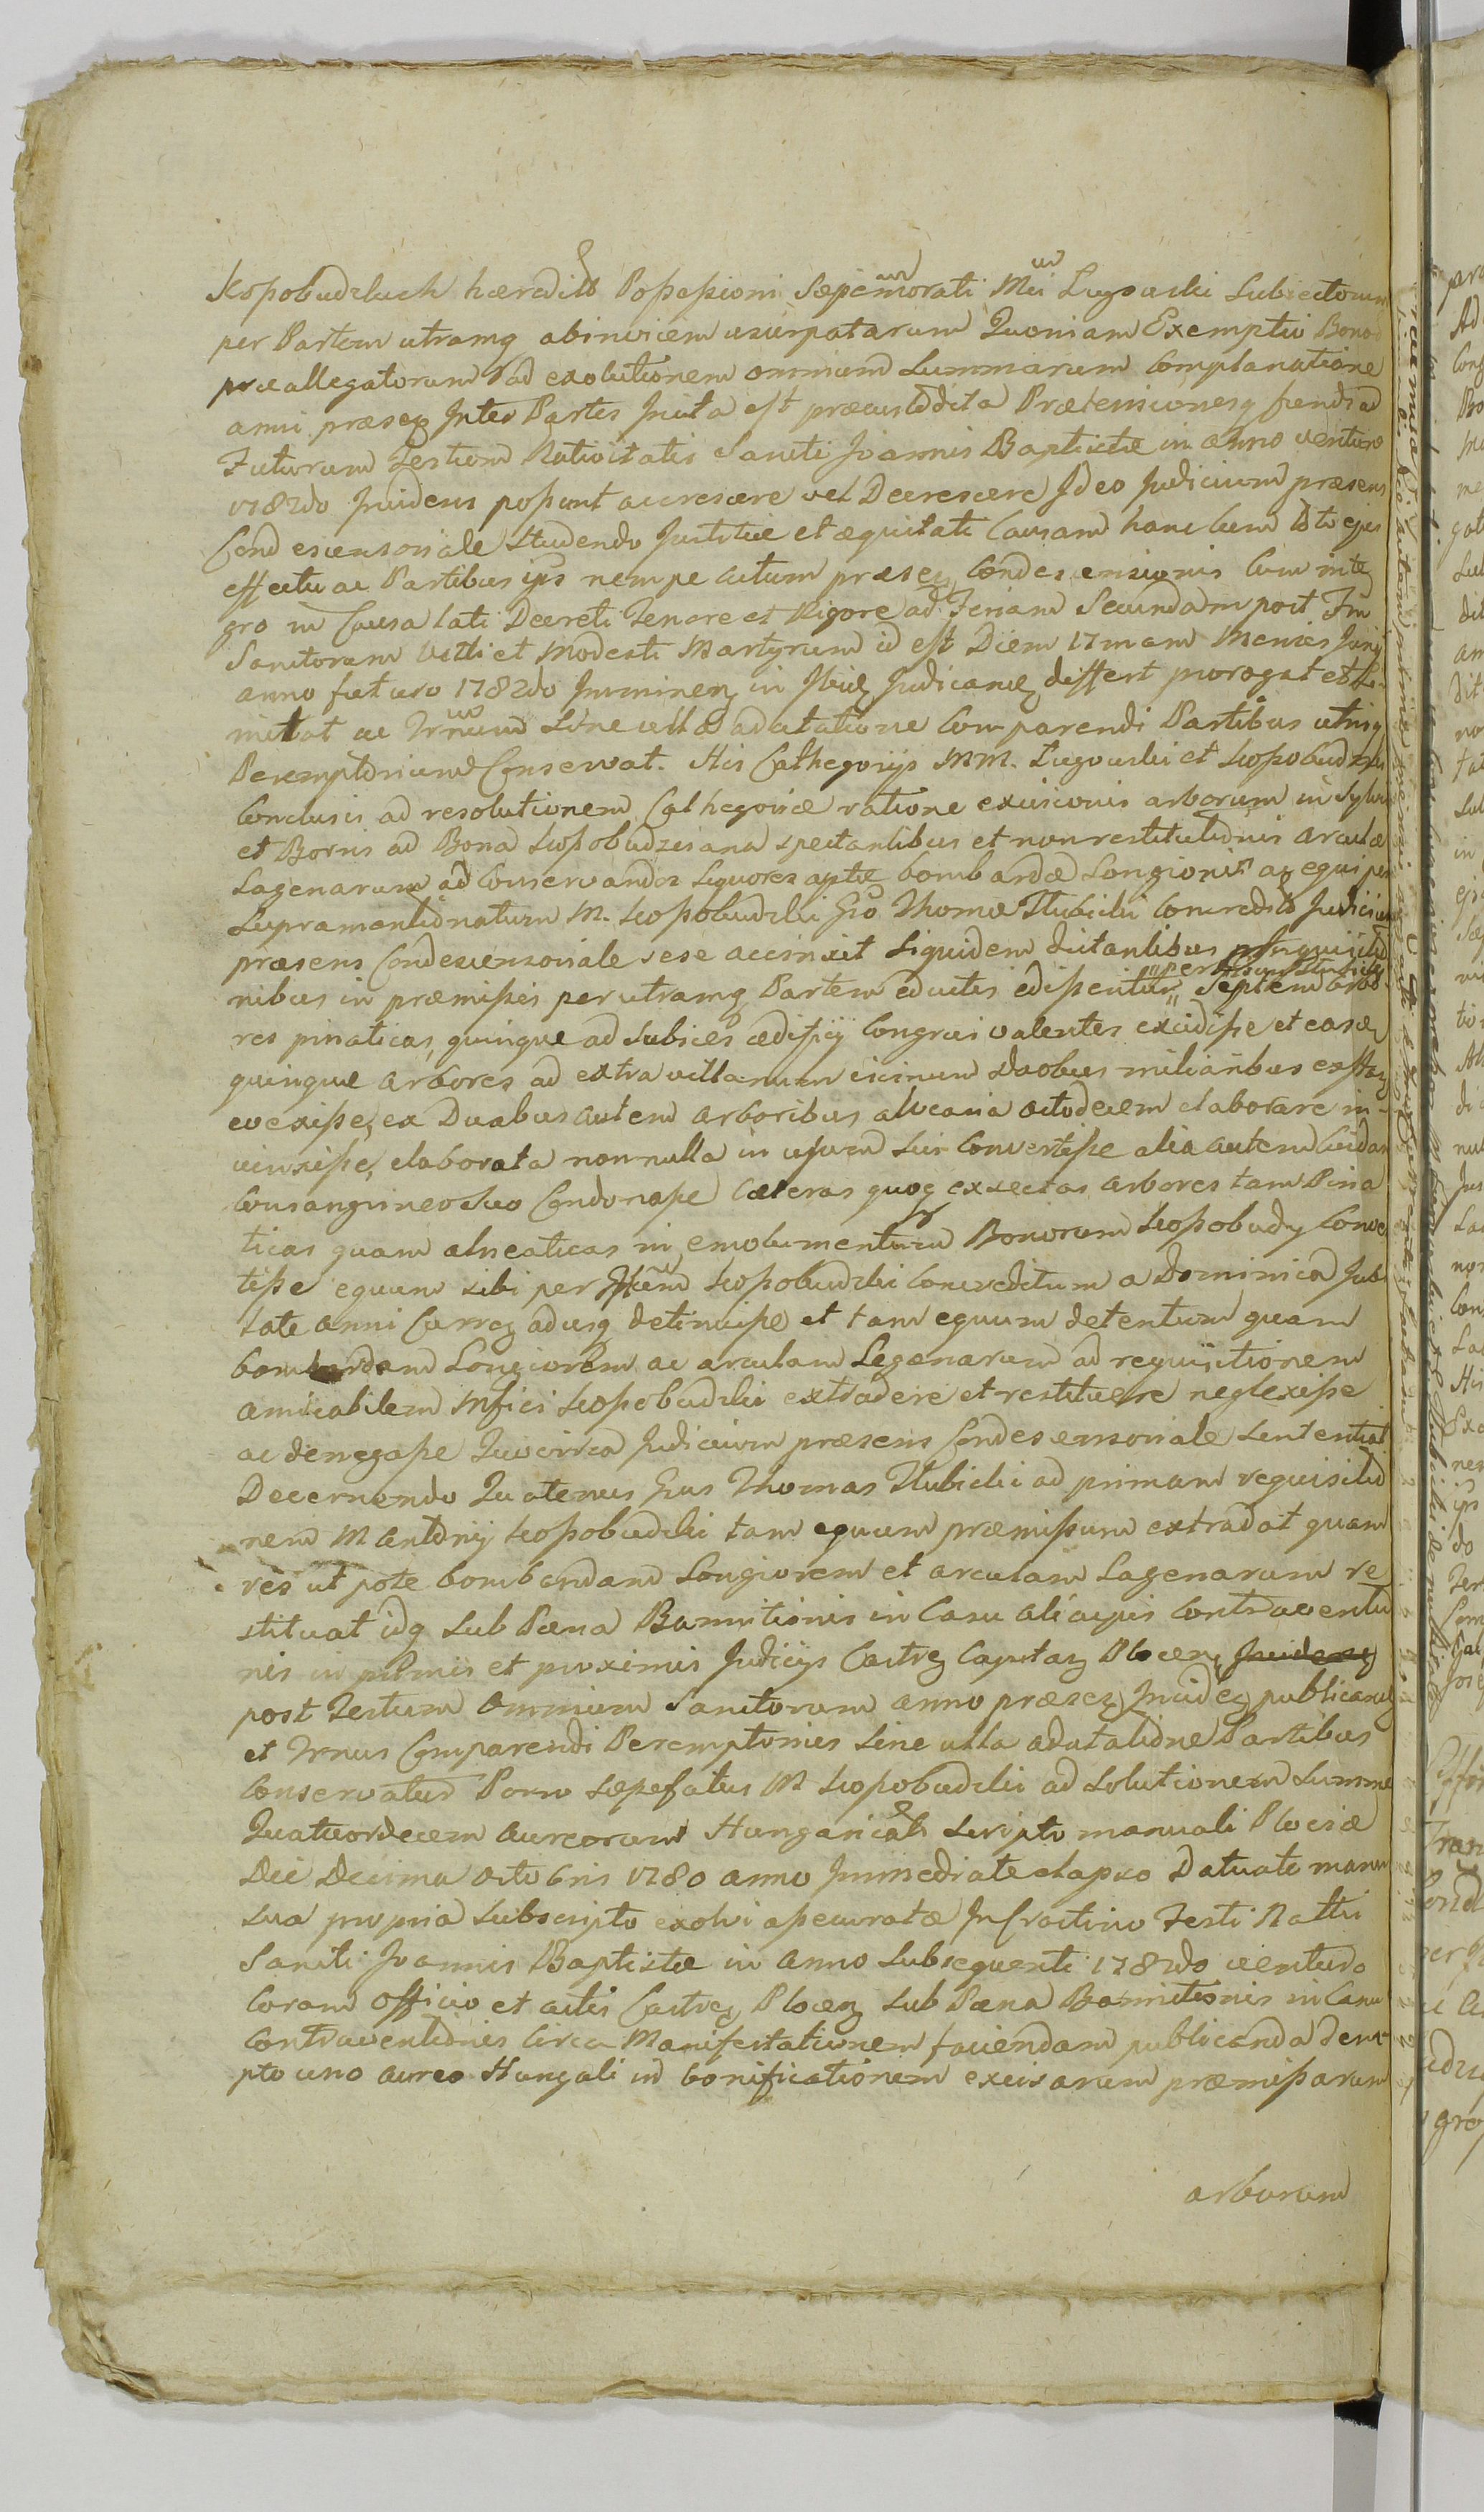 Scopobudzkich haeredittr Possessioni Saepememorati Mci Lugowski Subiectorum
per Partem utramq abinvicem usurpatarum Quoniam Exemptio Bonor
praeallegatorum ad exolutionem omnium Summarum Complanatione
anni praesez Inter Partes Inita est praecustodita Praetensionesq fundi ad
Futurum Festum Nativitatis Sancti Joannis Baptistae in anno venturo
1782do Incidens possunt accrescere vel Decrescere Ideo Judicium praesens
Condescensoriale Studendo Justitiae et aequitati Causam hanc cum toto ejus
effectu ac Partibus ips nempe actum praesez Condescensionis Cum inte
gro in Causa lati Decreti Tenore et Rigore ad Feriam Secundam post Ftm
Sanctorum Vitti et Modesti Martyrum id est Diem 17mam Mensis Junij
anno futuro 1782do Imminenz in Judicanz differt prorogat et Li-
mitat ac Trnum Sine ulla adcitatione Comparendi Partibus utrisq
Peremptorium Conservat. His Cathegorijs MM. Lugowski et Scopobudzki
Conclusis ad resolutionem Cathegoriae ratione excisionis arborum in Sylvis
et Borris ad Bona Scopobudzciana spectantibus et non restitutionis arculae
Lagenarum ad Conservandos Liquores aptae bombardae Longioris ac equi per
Supramentionatum M. Scopobudzki Gso Thomae Hubicki Concrediti Judicium
praesens Condescensoriale sese accinxit Siquidem dictantibus Inquisitio
nibus in praemissis per utramq Partem eductis edissentur Septem arbo
res pinaticas, quinque ad Subsices aedificij Congrui valentes excidisse et easd
quinque arbores ad extra villanum vicinum duobus miliaribus exstan
evexisse, ex Duabus autem arboribus alvearia actodecem elaborare in-
iunxisse, elaborata nonnulla in usum Sui Convertisse alia autem Cuidam
Consanguineo Suo Condonasse Caeteras quoq exsectas arbores tam Pina
ticas quam alneaticas in emolumentum Bonorum Scopobudz Conver
tisse equum sibi per Scopobudzki Concreditum a Dominica Jubi
late anni Currez adusq detinuisse et tam equum detentum quam
bombardam Longiorem ac arculam Legaenarum ad requisitionem
amicabilem Mfici Scopobudzki extradere et restituere neglexisse
ac denegasse Quocirca Judicium praesens Condescensoriale Sententiat
Decernendo Quatenus Gsus Thomas Hubicki ad primam requisitio
nem M Antonij Scopobudzki tam equum praemissum extradat quam
res ut pote bombardam Longiorem et arculam Lagenarum re
stituat idq Sub Paena Bannitionis in Casu aliacujus Contraventio
nis in primis et proximis Judicijs Castrez Capitaz Plocenz
post Festum Omnium Sanctorum anno praesez Incidez publicanz
et Trnus Comparendi Peremptorius Sine ulla adcitatione Partibus
Conservatur Porro Saepefatus M Scopobudzki ad Solutionem Summae
Quatuordecem aureorum Hungaricalr Scripto manuali Plociae
Die Decima Octobris 1780 anno Immediate elapso Datuato manu
Sua propria Subscripto exolvi assecuratae In Crastino Festi Nattis
Sancti Joannis Baptistae in anno Subsequenti 1782do venturo
Coram Officio et actis Castrez Plocenz Sub Paena Bannitionis in Casu
Contraventionis Circa Manifestationem faciendam publicanda dem-
pto uno aureo Hungali in bonificationem excisarum praemissarum
arborum